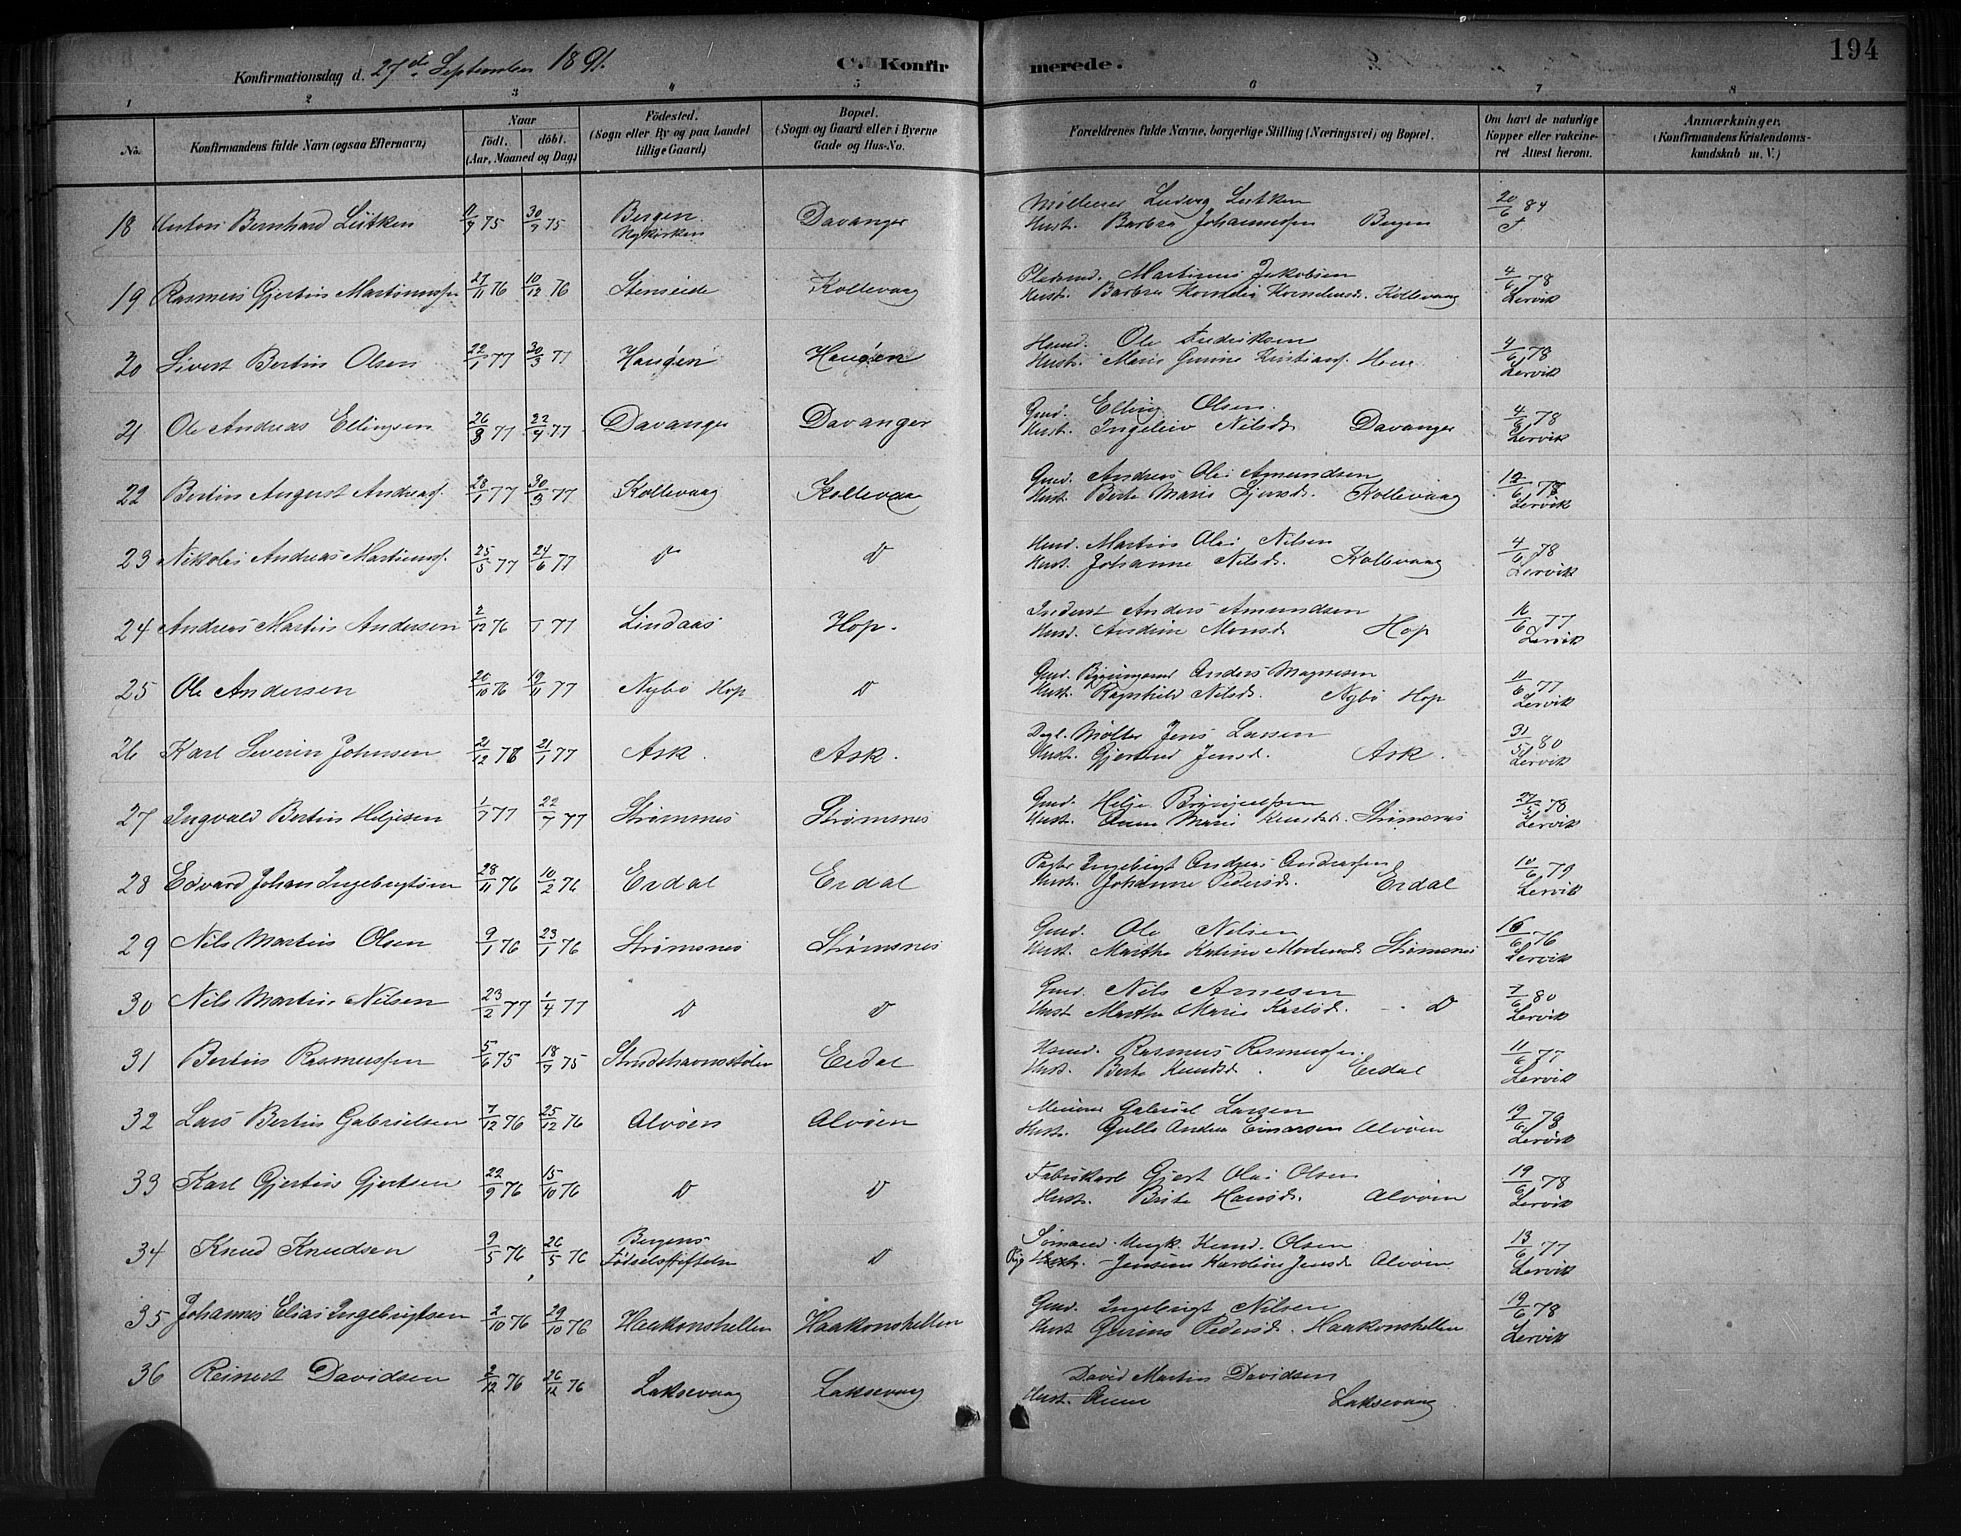 194
Konfirmationsdag d. 27de September 1891.
C. Konfirmerede.
1 2 3 4 5 6 7 8
No. Konfirmandens fulde Navn (ogsaa Efternavn) Naar født. døbt. (Aar, Maaned og Dag) Fødested. (Sogn eller By og paa Landet tillige Gaard) Bopæl. (Sogn og Gaard eller i Byerne Gade og Hus-No. Forældrenes fulde Navne, borgerlige Stilling (Næringsvei) og Bopæl. Om havt de naturlige Kopper eller vakcineret Attest herom. Anmærkninger. (Konfirmandens Kristendomskundskab m. V.)
18 Anton Bernhard Lütken 75 30/7 75 Bergen Nykirken Davanger Ludvig Lütken
Hust. Barbra Johannessen Bergen 20/6 84
19 Rasmus Gjertin Martinussen 27/11 76 10/12 76 Stenseide Kollevaag Martinus Jakobsen
Hust. Barbra Kollevaag 4/6 78 Lervik
20 Sivert Bertin Olsen 22/1 77 30/3 77 Haugen Haugen Ole Fredriksen
Hust. Marie Gurine 4/6 78 Lervik
21 Ole Andreas Ellingsen 26/3 77 22/4 77 Davanger Davanger Gmd. Elling Olsen
Hust. Ingeleiv Nilsd. Davanger 4/6 78 Lervik
22 Bertin August Andreass. 28/1 77 30/3 77 Kollevaag Kollevaa Gmd. Andreas Olai Amundsen
Hust. Berte Marie Kollevaag 12/6 78 Lervik
23 Nikolai Andreas Martinuss. 25/5 77 24/6 77 D D Martin Olai Nilsen
Hust. Johanne Nilsd. Kollevaag 4/6 78 Lervik
24 Andreas Martin Andersen 2/12 76 77 Lindaas Hop. Inderst Anders Amundsen
Andrine Monsd. Hop 77 Lervik
25 Ole Andersen 20/10 76 19/11 77 Nybø Hop D Gmd. Anders Magnesen
Hust. Ragnhild Nilsd. Nybø Hop 11/6 77 Lervik
26 Karl Severin Johnsen 21/12 76 21/1 77 Ask. Ask. Møller Jens Larsen
Hust. Gjertrud Jensd. Ask. 31/5 80 Lervik
27 Ingvald Bertin Heljesen 1/7 77 22/7 77 Strømsnes Strømsnes Gmd. Helje
Hust. Anna Marie Knudsd. Strømsnes 27/5 78 Lervik
28 Edvard Johan Ingebrigtsen 28/11 76 10/2 76 Erdal Erdal Ingebrigt Andreas Andreassen
Hust. Johanne Pedersd. Erdal 10/6 79 Lervik
29 Nils Martin Olsen 9/1 76 23/1 76 Strømsnes Strømsnes Gmd. Ole Nilsen
Hust. Martha Katrine Strømsnes 16/6 76 Lervik
30 Nils Martin Nilsen 23/2 77 1/4 77 D D Gmd. Nils Arnesen
Hust Martha Marie Karlsd. D 7/6 80 Lervik
31 Bertin Rasmussen 5/6 75 18/7 75 Erdal Rasmus Rasmussen
Hust. Berte Knudsd. Erdal 11/6 77 Lervik
32 Lars Bertin Gabrielsen 7/12 76 25/12 76 Alvøen Alvøen Gabriel Larsen
Hust. Andrea Einarsen Alvøen 19/6 78 Lervik
33 Karl Gjertin Gjertsen 22/9 76 15/10 76 D D Fabrikarb Gjert Olai Olsen
Hust. Brite Hansd. Alvøen 19/6 78 Lervik
34 Knud Knudsen 9/5 76 26/5 76 Bergens Fødselsstiftelse D Sømand Ungk. Knud Olsen
Pig Jensine Karoline Jensd Alvøen 13/6 77 Lervik
35 Johannes Elias Ingebrigtsen 2/10 76 29/10 76 Haakonshellen Haakonshellen Gmd. Ingebrigt Nilsen
Hust Gurine Pedersd. Haakonshellen 19/6 78 Lervik
36 Reinert Davidsen 2/12 76 26/12 76 Laksevaag Laksevaag David Martin Davidsen
Hust. Anne Laksevaag